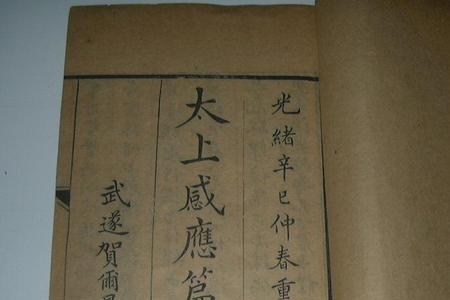 光緒辛巳仲春重
太上感應篇
武遂賀爾昌